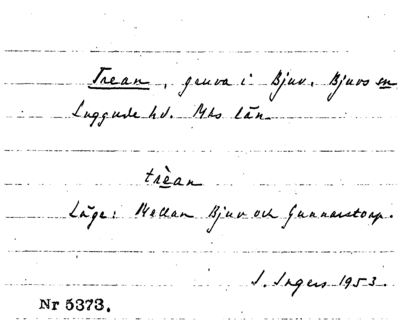 Trean, gruva i Bjuv. Bjuvs sn
Luggude hd. Mhs län
trèan
Läge: Mellan Bjuv och Gunnarstorp.
I. Ingers 1953.
Nr 5373.